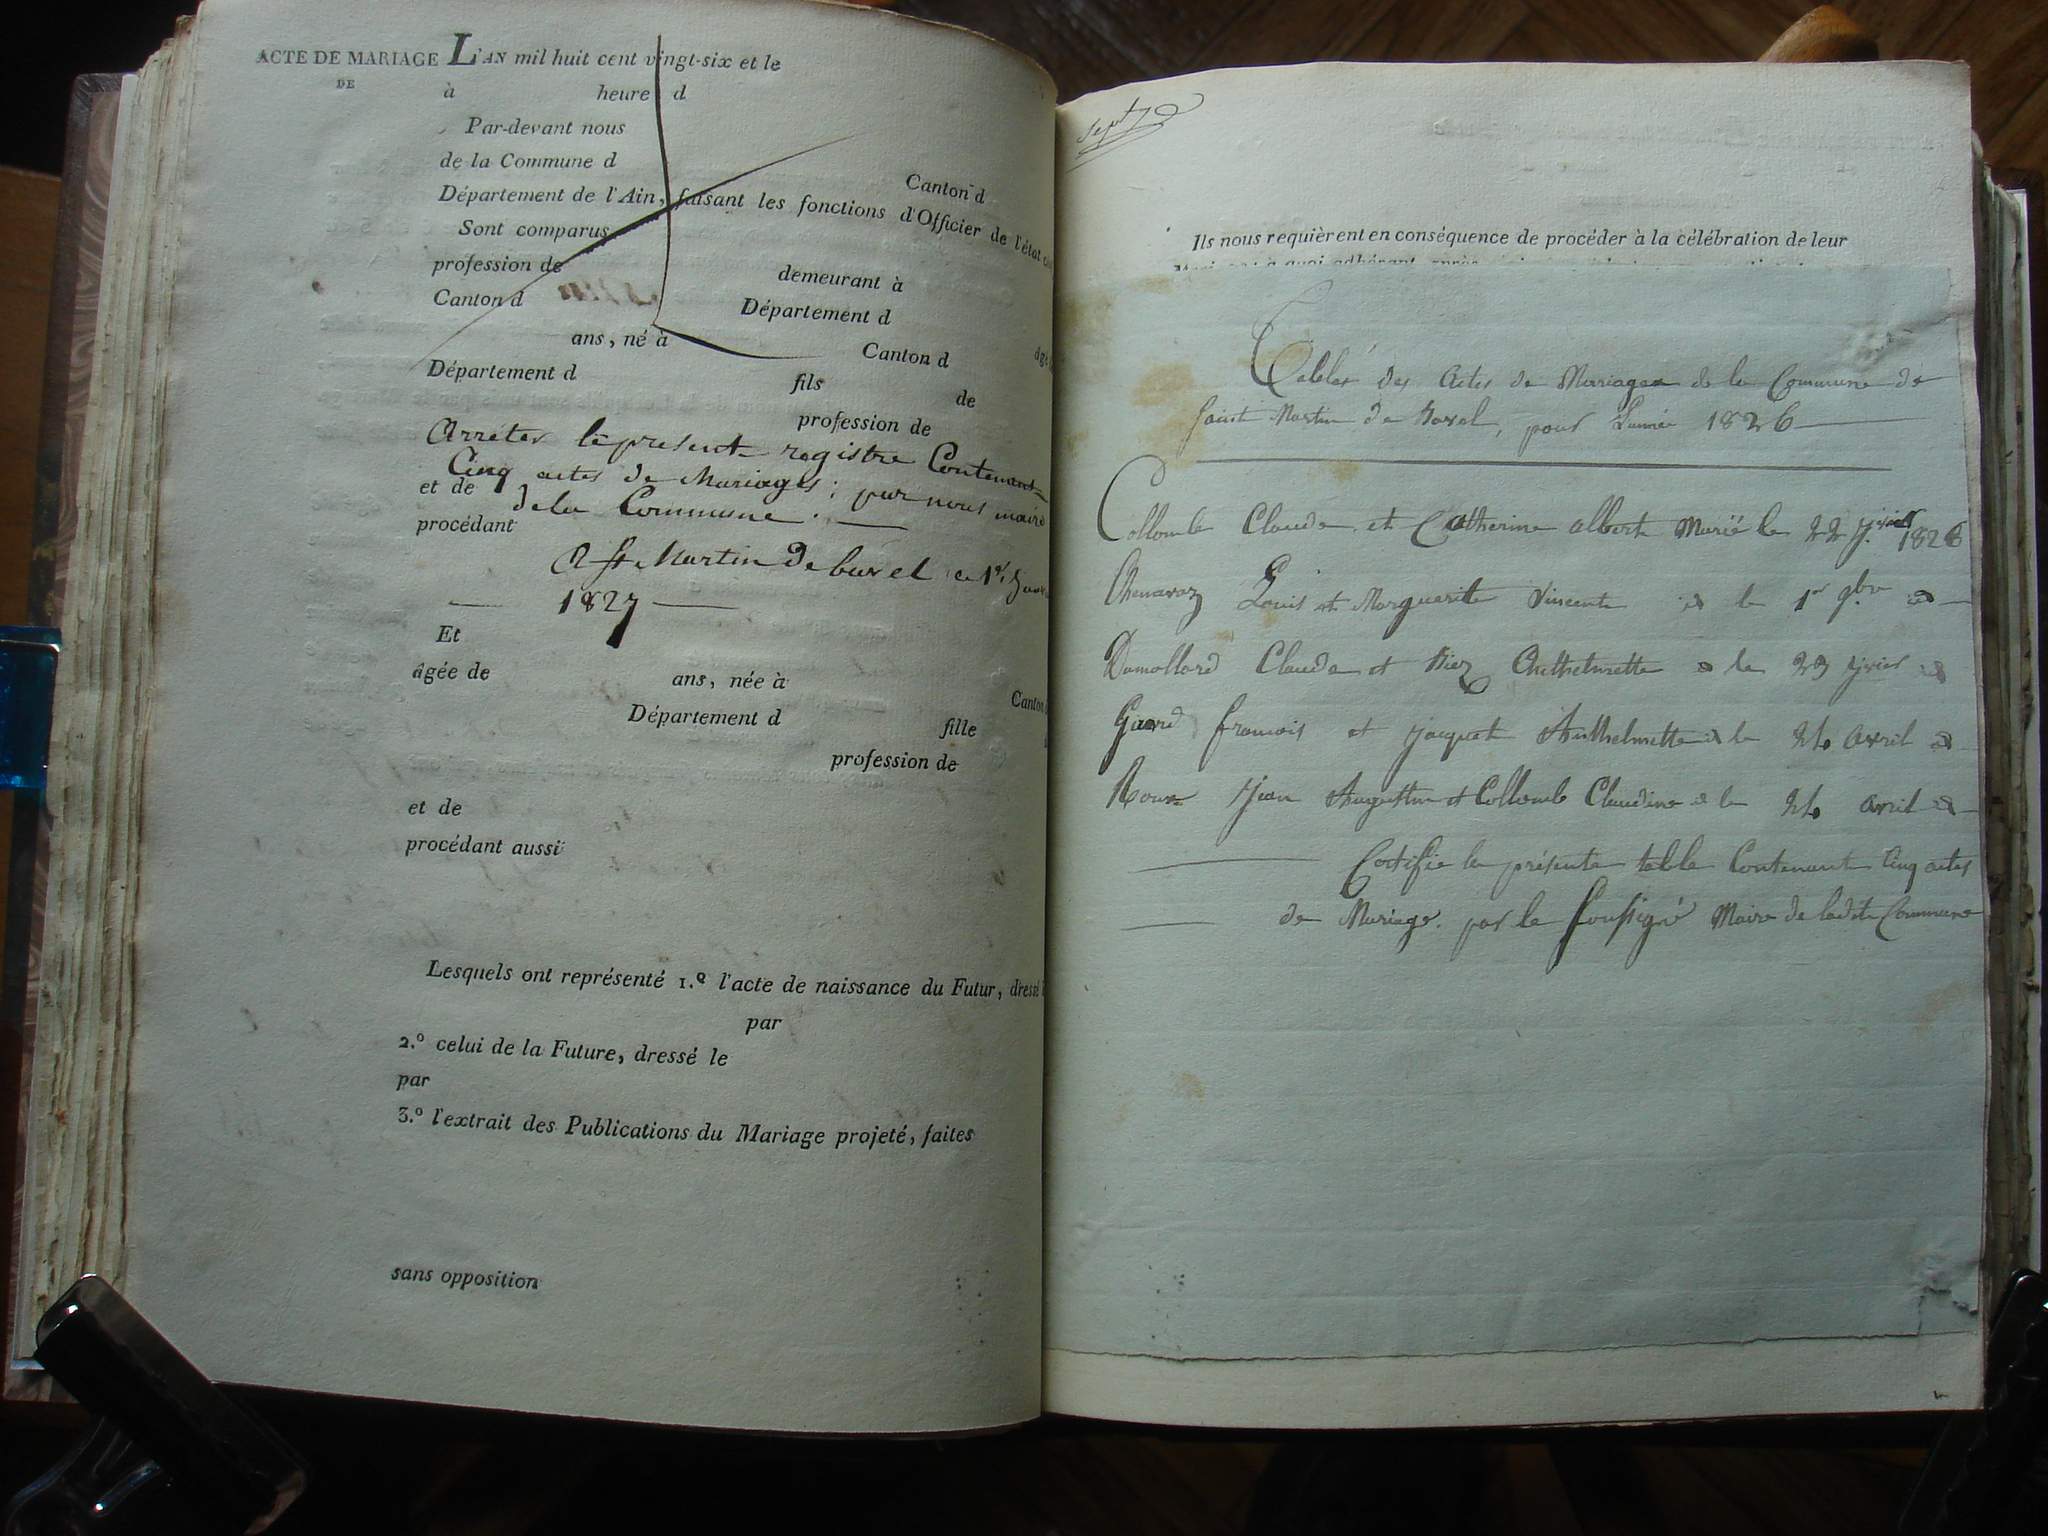 ACTE DE MARIAGE L'AN mil huit cent vingt-six et le
DE à heure d
Par-devant nous
de la Commune d Canton d
Département de l'Ain, faisant les fonctions d'Officier de l'état
Sont comparus
profession de demeurant à
Canton d Département d
ans, né à Canton d
Département d fils de
profession de
Arreter le present registre Contenant
Cinq actes de Mariages; par nous maire
et de de la Commune.
procédant
A St Martin de bavel ce 1er
1827
Et
âgée de ans, née à Canton
Département d fille
profession de
et de
procédant aussi
Lesquels ont représenté 1.º l'acte de naissance du Futur, dressé
par
2.º celui de la Future, dressé le
par
3.º l'extrait des Publications du Mariage projeté, faites
sans opposition
Sept
Ils nous requièrent en conséquence de procéder à la célébration de leur
Tables des Actes de Marriages de la Commune de
Saint Martin de Bavel, pour L'année 1826
Collomb Claude et Catherine albert Marié le 22 1826
Chenavaz Louis et Marguerite Vincent id le 1er 9bre id
Dumollard Claude et Biez Anthelmette id le 23 id
Gavard francois et jacquet Anthelmette id le 24 avril id
Roux Jean Augustin et Collomb Claudine id le 24 avril id
Certifié la présente table Contenant Cinq actes
de Mariage. par le soussigné Maire de ladite Commune